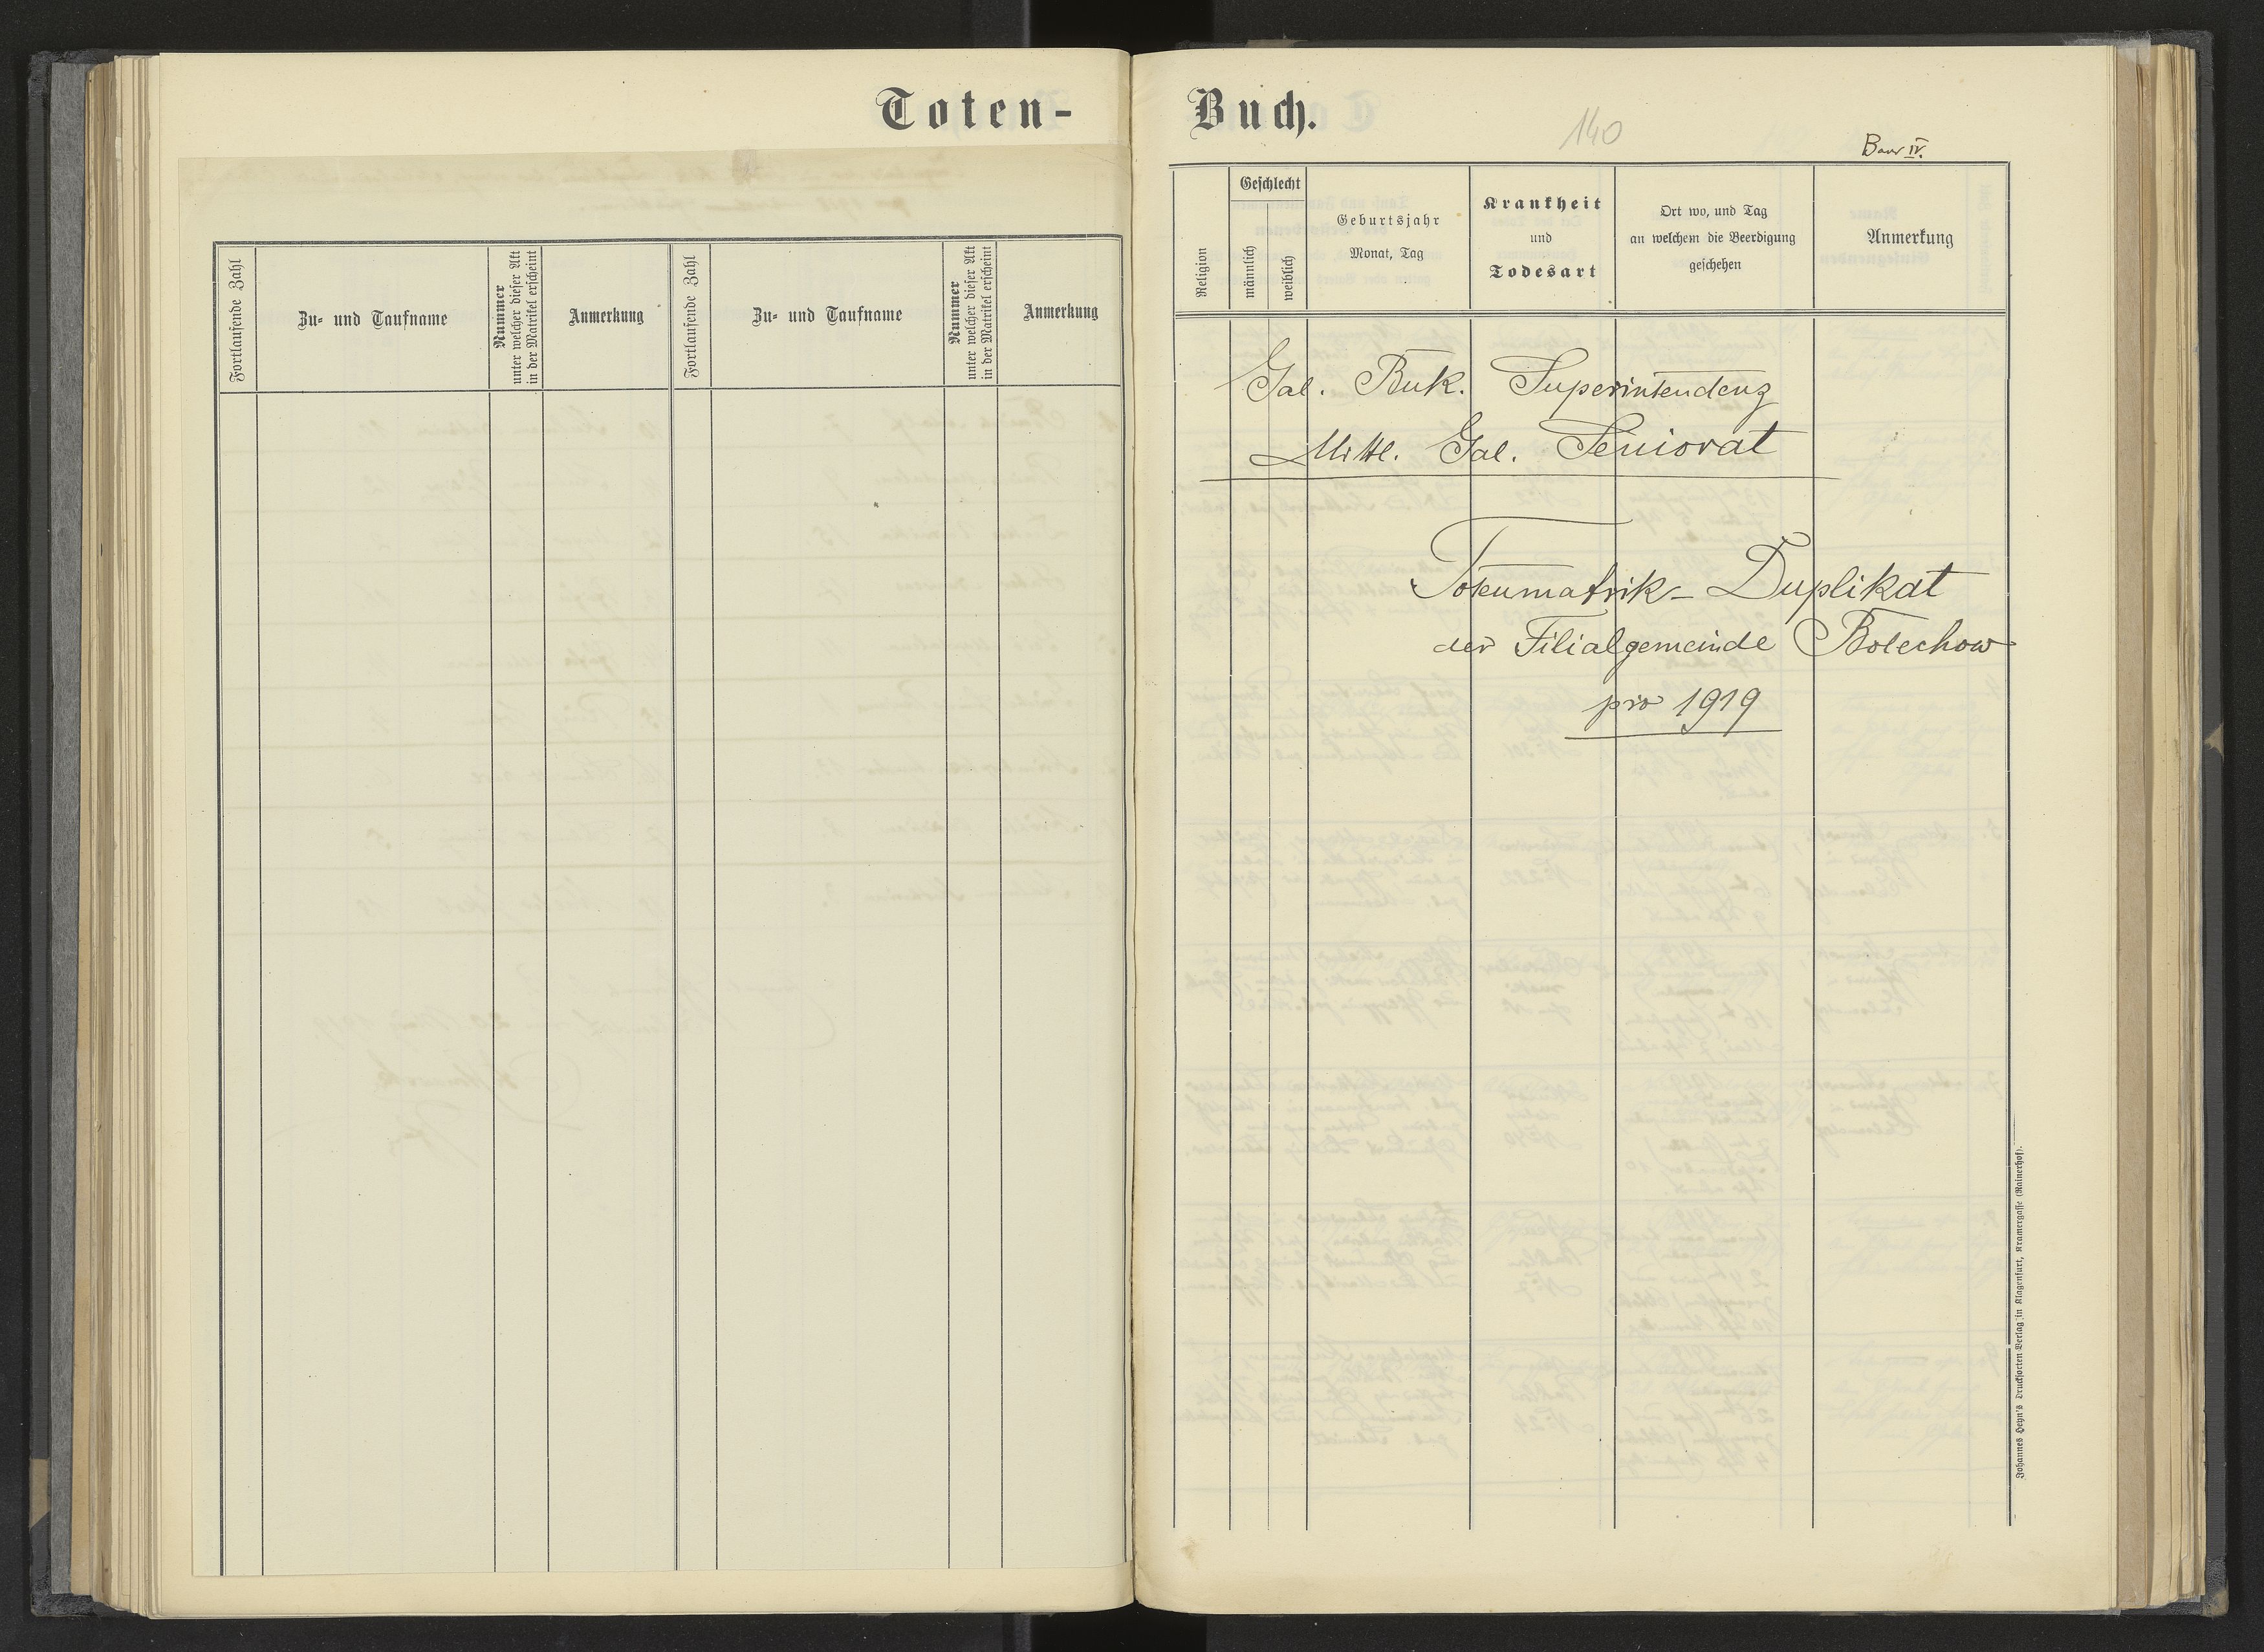 Toten-
Fortlaufende Zahl
Zu- und Taufname
Nummer
unter welcher dieser Akt
in der Matrikel erscheint
Anmerkung
Fortlaufende Zahl
Zu- und Taufname
Nummer
unter welcher dieser Akt
in der Matrikel erscheint
Anmerkung
Buch.
140
IV.
Religion
Geschlecht
männlich
weiblich
Geburtsjahr
Monat, Tag
Krankheit
und
Todesart
Ort wo, und Tag
an welchem die Beerdigung
geschehen
Anmerkung
Gal. Buk. Superintendenz
Mittl. Gal. Seniorat
Totenmatrik - Duplikat
der Filialgemeinde Bolechow
pro 1919
Johannes Heyn's Drucksorten-Verlag in Klagenfurt, Kramergasse (Rainerhof).